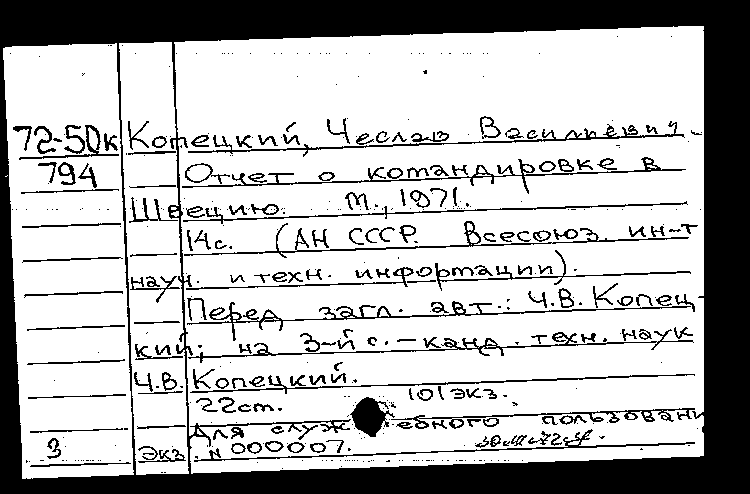 72-50к Копецкий, Чеслав Васильевич.
794 Отчет о командировке в
Швецию. М., 1971.
14с. (АН СССР. Всесоюз. ин-т
науч. и техн. информации).
Перед загл. авт.: Ч.В. Копец-
кий; на 3-й с. – канд. техн. наук
Ч.В. Копецкий.
22см. 101экз.
Для служебного пользовани
3 Экз. N 000007.